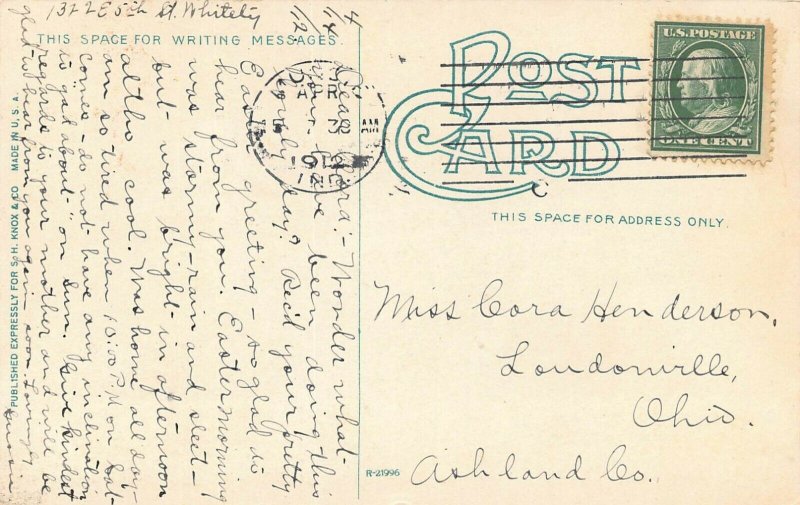 1322 E 5th St. Whitely
4/14/12.
THIS SPACE FOR WRITING MESSAGES.
Dear Cora:- Wonder what
you have been doing this
lovely day? Rec'd your pretty
Easter greeting - so glad to
hear from you. Easter morning
was stormy - rain and sleet -
but was bright in afternoon
altho cool. Was home all day -
am so tired when 10:00 P.M. on Sat-
comes - do not have any inclination
to "gad about" on Sun. Give kindest
regards to your mother and will be
glad to hear from you again soon. Lovingly
PUBLISHED EXPRESSLY FOR S. H. KNOX & CO. MADE IN U. S. A.
POST
CARD
APR
AM
1912
U.S. POSTAGE
ONE CENT
THIS SPACE FOR ADDRESS ONLY.
Miss Cora Henderson,
Loudonville,
Ohio.
Ashland Co.
R-21996